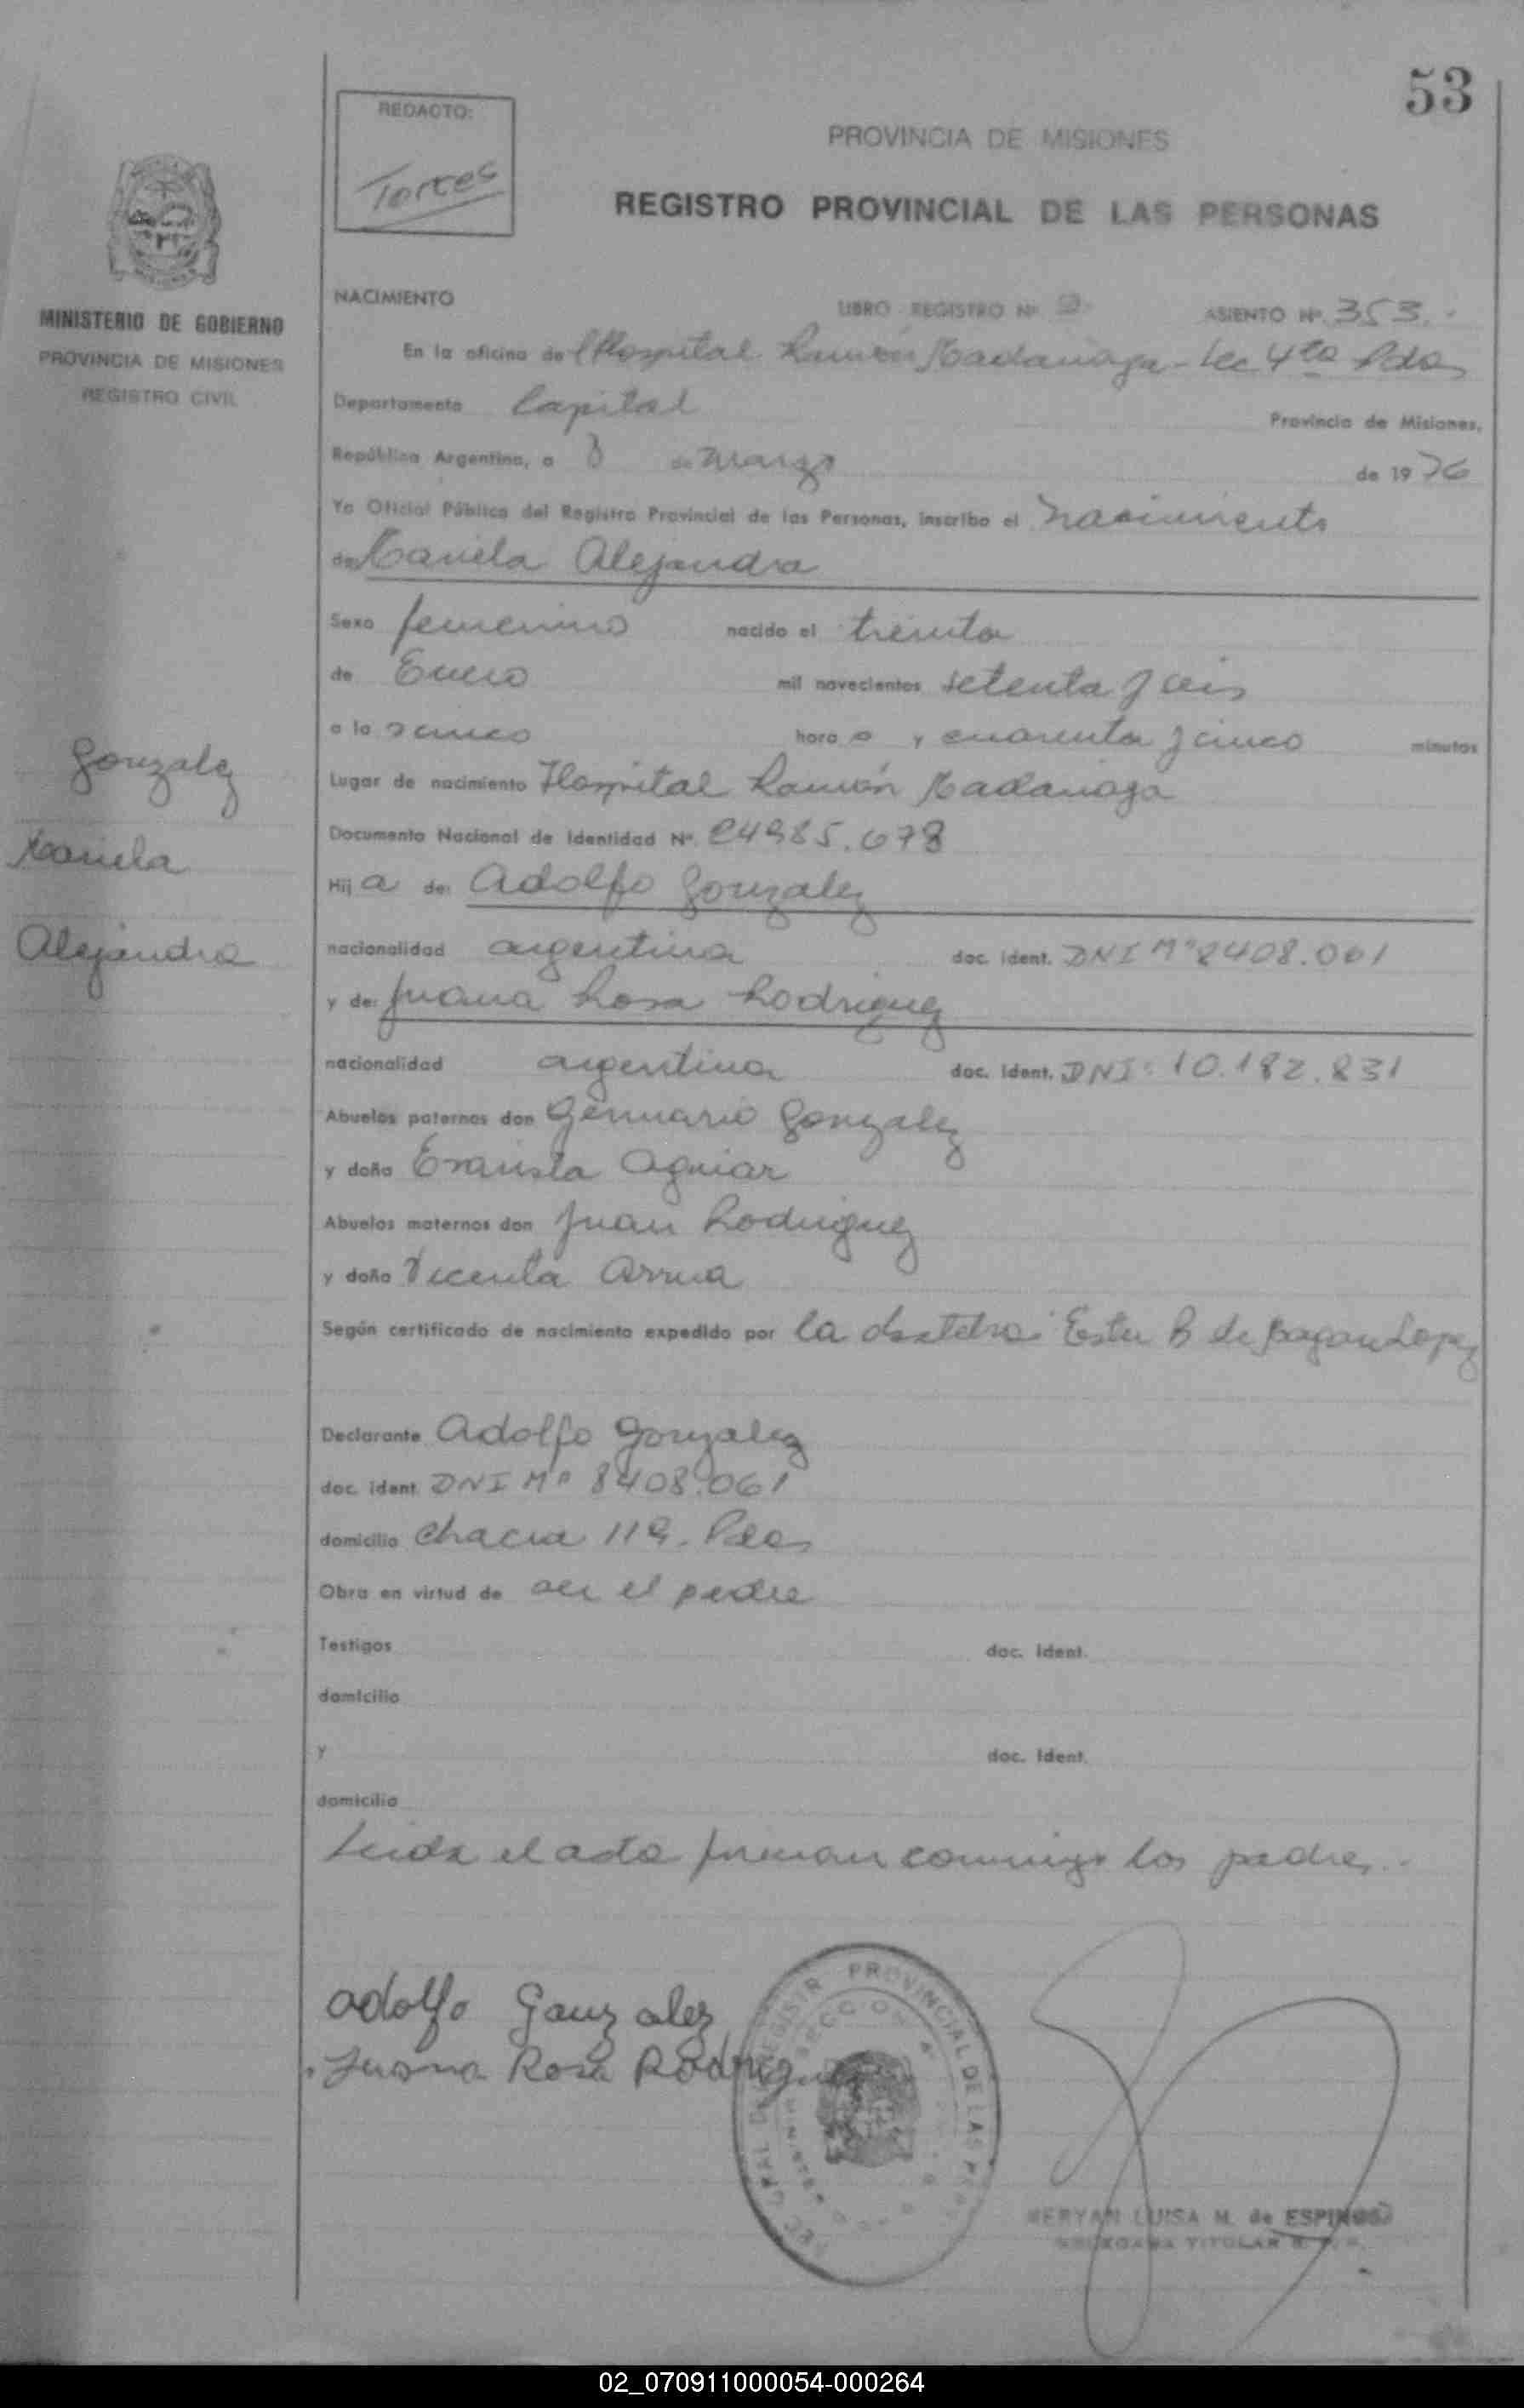 53
REDACTO:
Torres
PROVINCIA DE MISIONES
REGISTRO PROVINCIAL DE LAS PERSONAS
MINISTERIO DE GOBIERNO
PROVINCIA DE MISIONES
REGISTRO CIVIL
NACIMIENTO LIBRO REGISTRO Nº 2 ASIENTO Nº 353.-
En la oficina del Hospital Ramón Madariaga - Sec 4ta Pdas
Departamento Capital Provincia de Misiones,
República Argentina, a 8 de Marzo de 1976
Yo Oficial Público del Registro Provincial de las Personas, inscribo el nacimiento
de Mariela Alejandra
Sexo femenino nacido el treinta
de Enero mil novecientos setenta y seis
a la s cinco hora s y cuarenta y cinco minutos
Lugar de nacimiento Hospital Ramón Madariaga
Documento Nacional de Identidad Nº 24985.678
Hij a de: Adolfo Gonzalez
nacionalidad argentina doc. ident. DNI Mº 8408.061
y de: Juana Rosa Rodriguez
nacionalidad argentina doc. ident. DNI: 10.182.831
Abuelos paternos don Gennario Gonzalez
y doña Evarista Aguiar
Abuelos maternos don Juan Rodriguez
y doña Vicenta Arrua
Según certificado de nacimiento expedido por la obstetra: Ester B de Lopez
Declarante Adolfo Gonzalez
doc. ident. DNI Mº 8408.061
domicilio Chacra 119. Pdas
Obra en virtud de ser el padre
Testigos doc. ident.
domicilio
y doc. ident.
domicilio
Leida el acta firman conmigo los padres.-
Gonzalez
Mariela
Alejandra
Adolfo Gonzalez
Juana Rosa Rodriguez
REGISTR. PROVINCIAL DE LAS PER
SECCION 4
MERYAN LUISA M. de ESPINOSA
DELEGADA TITULAR
02_070911000054-000264